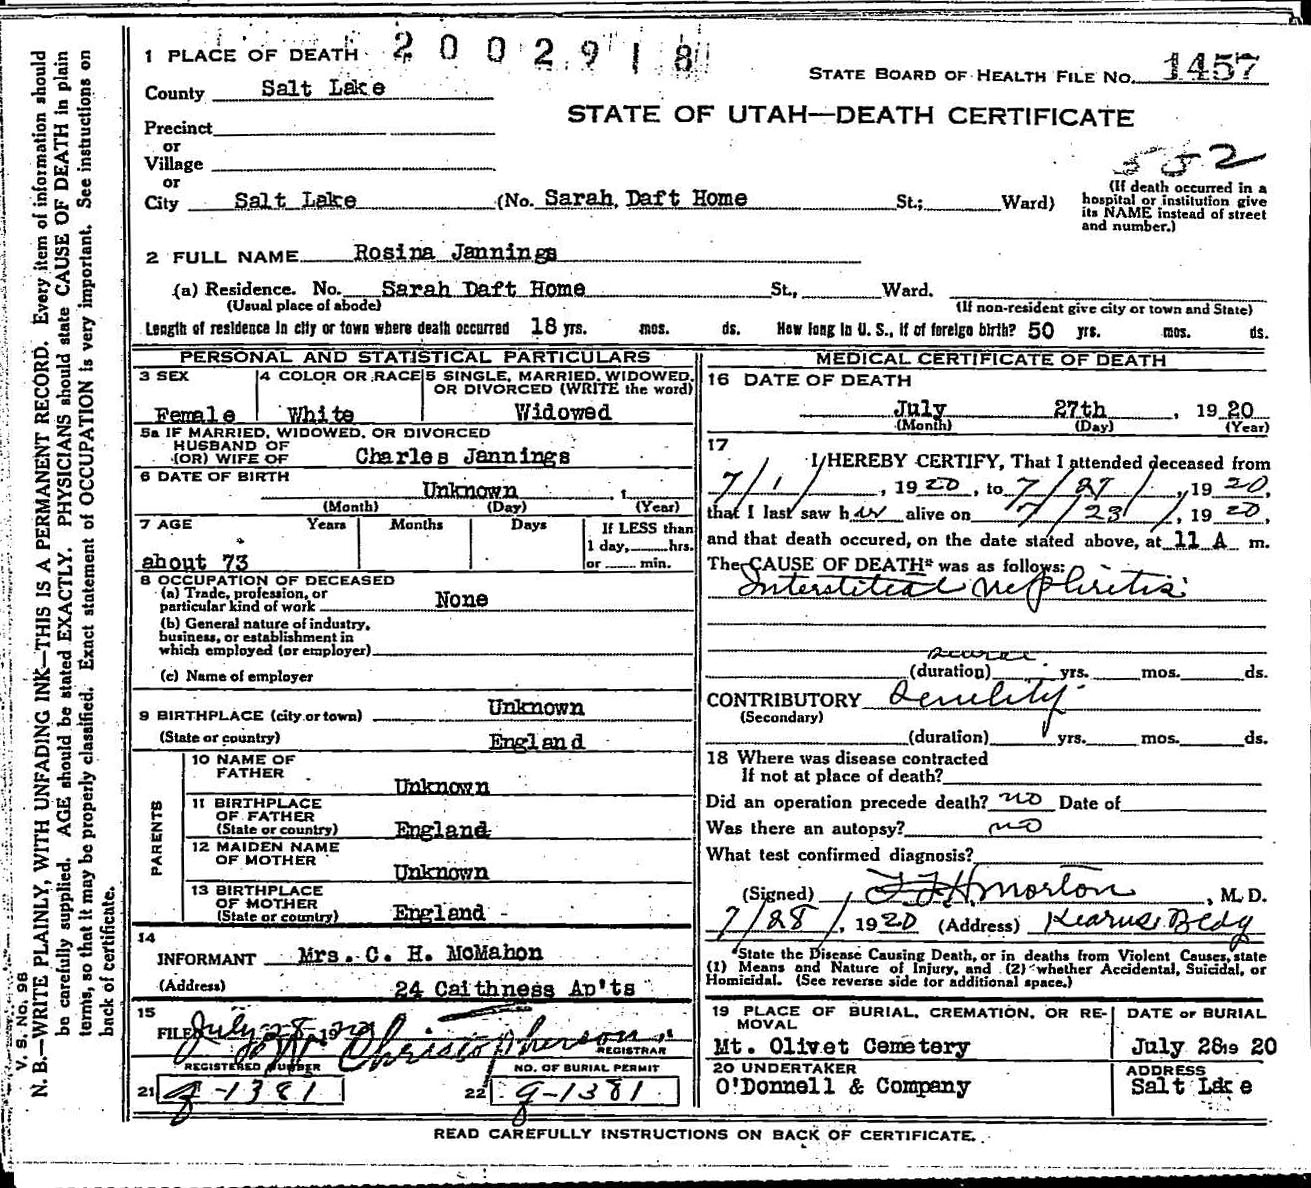 2002918
1 PLACE OF DEATH
STATE BOARD OF HEALTH FILE NO. 1457
County Salt Lake
STATE OF UTAH—DEATH CERTIFICATE
Precinct
or
Village
or
552
City Salt Lake (No. Sarah Daft Home St.; Ward)
(If death occurred in a
hospital or institution give
its NAME instead of street
and number.)
2 FULL NAME Rosina Jannings
(a) Residence. No. Sarah Daft Home St., Ward.
(Usual place of abode) (If non-resident give city or town and State)
Length of residence in city or town where death occurred 18 yrs. mos. ds. How long in U. S., if of foreign birth? 50 yrs. mos. ds.
PERSONAL AND STATISTICAL PARTICULARS
3 SEX 4 COLOR OR RACE 5 SINGLE, MARRIED, WIDOWED,
OR DIVORCED (WRITE the word)
Female White Widowed
5a IF MARRIED, WIDOWED, OR DIVORCED
HUSBAND OF
(OR) WIFE OF Charles Jannings
6 DATE OF BIRTH
Unknown
(Month) (Day) (Year)
7 AGE Years Months Days If LESS than
1 day, hrs.
about 73 or min.
8 OCCUPATION OF DECEASED
(a) Trade, profession, or
particular kind of work None
(b) General nature of industry,
business, or establishment in
which employed (or employer)
(c) Name of employer
9 BIRTHPLACE (city or town) Unknown
(State or country) England
PARENTS
10 NAME OF
FATHER
Unknown
11 BIRTHPLACE
OF FATHER
(State or country) England
12 MAIDEN NAME
OF MOTHER
Unknown
13 BIRTHPLACE
OF MOTHER
(State or country) England
14
INFORMANT Mrs. C. H. McMahon
(Address) 24 Caithness Ap'ts
15
FILED July 28 1920 Christopherson
REGISTRAR
REGISTERED NUMBER NO. OF BURIAL PERMIT
21 g-1381 22 g-1381
MEDICAL CERTIFICATE OF DEATH
16 DATE OF DEATH
July 27th, 1920
(Month) (Day) (Year)
17
I HEREBY CERTIFY, That I attended deceased from
7/1/, 1920, to 7/27/, 1920,
that I last saw her alive on 7/23/, 1920,
and that death occured, on the date stated above, at 11 A m.
The CAUSE OF DEATH* was as follows:
Interstitial nephritis
several
(duration) yrs. mos. ds.
CONTRIBUTORY Senility
(Secondary)
(duration) yrs. mos. ds.
18 Where was disease contracted
If not at place of death?
Did an operation precede death? no Date of
Was there an autopsy? no
What test confirmed diagnosis?
(Signed) Morton, M. D.
7/28/, 1920 (Address) Kearns Bldg
*State the Disease Causing Death, or in deaths from Violent Causes, state
(1) Means and Nature of Injury, and (2) whether Accidental, Suicidal, or
Homicidal. (See reverse side for additional space.)
19 PLACE OF BURIAL, CREMATION, OR RE-
MOVAL
DATE OF BURIAL
Mt. Olivet Cemetery July 28 19 20
20 UNDERTAKER ADDRESS
O'Donnell & Company Salt Lake
READ CAREFULLY INSTRUCTIONS ON BACK OF CERTIFICATE.
V. S. No. 98
N. B.—WRITE PLAINLY, WITH UNFADING INK—THIS IS A PERMANENT RECORD. Every item of information should
be carefully supplied. AGE should be stated EXACTLY. PHYSICIANS should state CAUSE OF DEATH in plain
terms, so that it may be properly classified. Exact statement of OCCUPATION is very important. See instructions on
back of certificate.